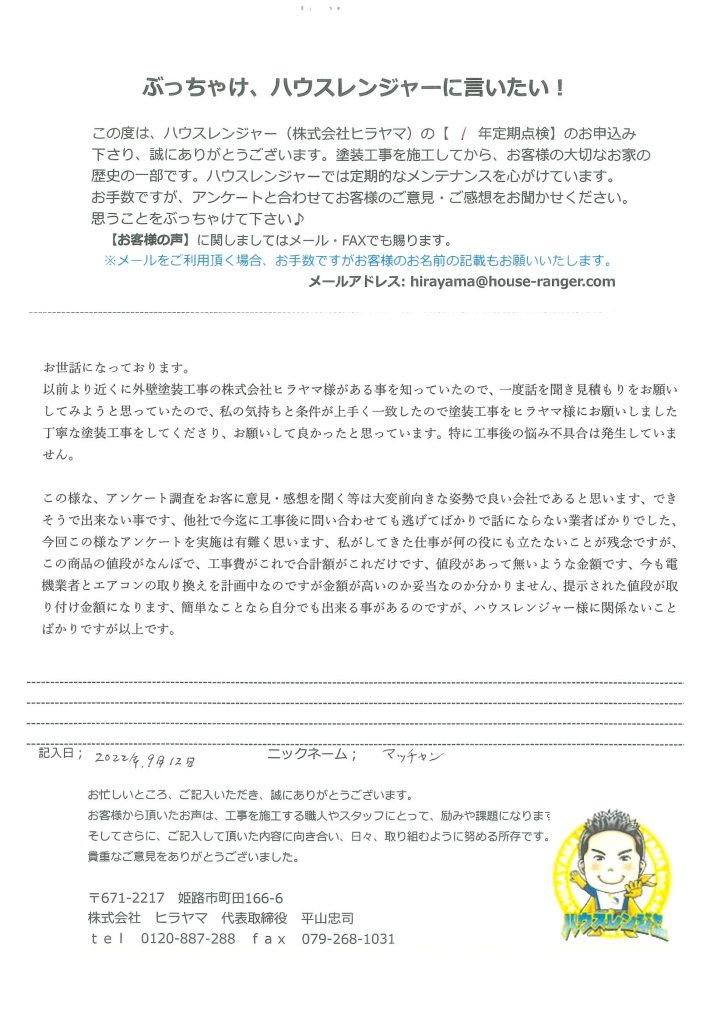 ぶっちゃけ、ハウスレンジャーに言いたい！
この度は、ハウスレンジャー（株式会社ヒラヤマ）の【 1 年定期点検】のお申込み
下さり、誠にありがとうございます。塗装工事を施工してから、お客様の大切なお家の
歴史の一部です。ハウスレンジャーでは定期的なメンテナンスを心がけています。
お手数ですが、アンケートと合わせてお客様のご意見・ご感想をお聞かせください。
思うことをぶっちゃけて下さい♪
【お客様の声】に関しましてはメール・FAXでも賜ります。
※メールをご利用頂く場合、お手数ですがお客様のお名前の記載もお願いいたします。
メールアドレス: hirayama@house-ranger.com
お世話になっております。
以前より近くに外壁塗装工事の株式会社ヒラヤマ様がある事を知っていたので、一度話を聞き見積もりをお願い
してみようと思っていたので、私の気持ちと条件が上手く一致したので塗装工事をヒラヤマ様にお願いしました
丁寧な塗装工事をしてくださり、お願いして良かったと思っています。特に工事後の悩み不具合は発生していま
せん。
この様な、アンケート調査をお客に意見・感想を聞く等は大変前向きな姿勢で良い会社であると思います、でき
そうで出来ない事です、他社で今迄に工事後に問い合わせても逃げてばかりで話にならない業者ばかりでした、
今回この様なアンケートを実施は有難く思います、私がしてきた仕事が何の役にも立たないことが残念ですが、
この商品の値段がなんぼで、工事費がこれで合計額がこれだけです、値段があって無いような金額です、今も電
機業者とエアコンの取り換えを計画中なのですが金額が高いのか妥当なのか分かりません、提示された値段が取
り付け金額になります、簡単なことなら自分でも出来る事があるのですが、ハウスレンジャー様に関係ないこと
ばかりですが以上です。
記入日； 2022年9月12日 ニックネーム； マッチャン
お忙しいところ、ご記入いただき、誠にありがとうございます。
お客様から頂いたお声は、工事を施工する職人やスタッフにとって、励みや課題になります
そしてさらに、ご記入して頂いた内容に向き合い、日々、取り組むように努める所存です。
貴重なご意見をありがとうございました。
〒671-2217 姫路市町田166-6
株式会社 ヒラヤマ 代表取締役 平山忠司
ｔｅｌ 0120-887-288 ｆａｘ 079-268-1031
ハウスレンジャー